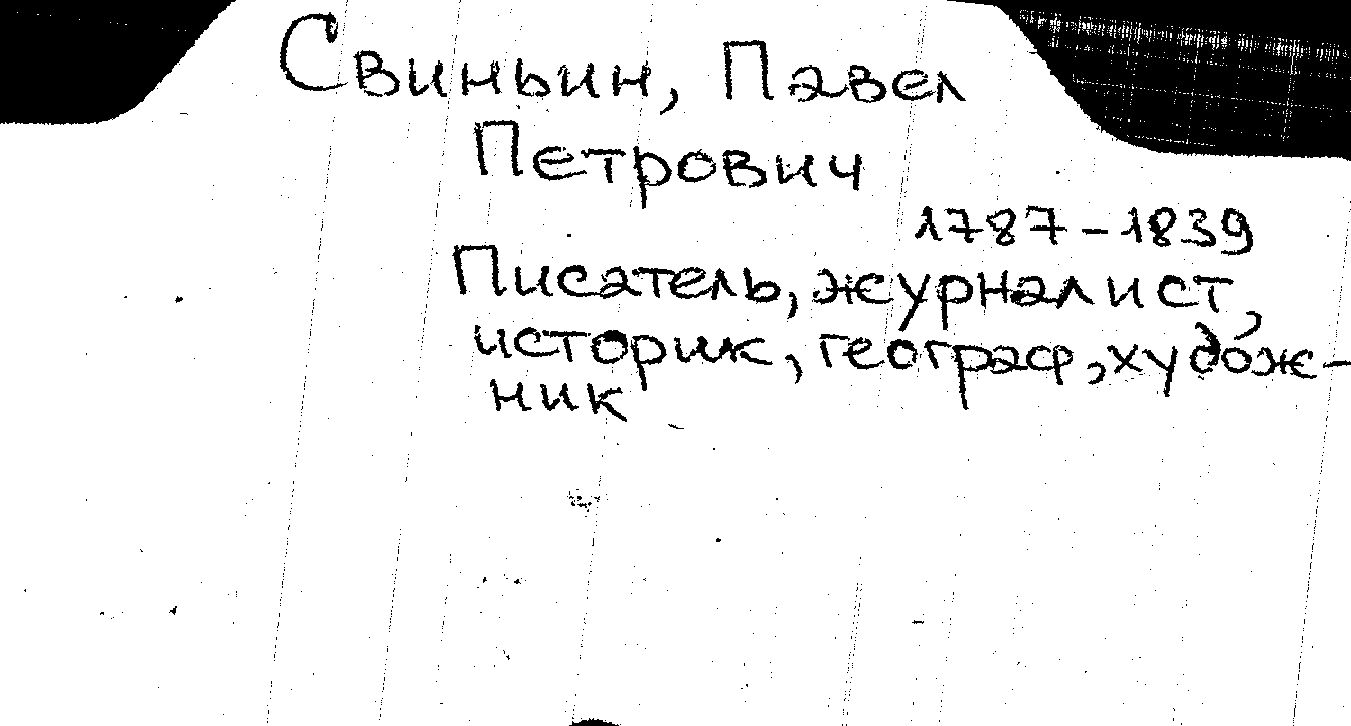 Свиньин, Павел
Петрович
1787-1839
Писатель, журналист,
историк, географ, худож-
ник